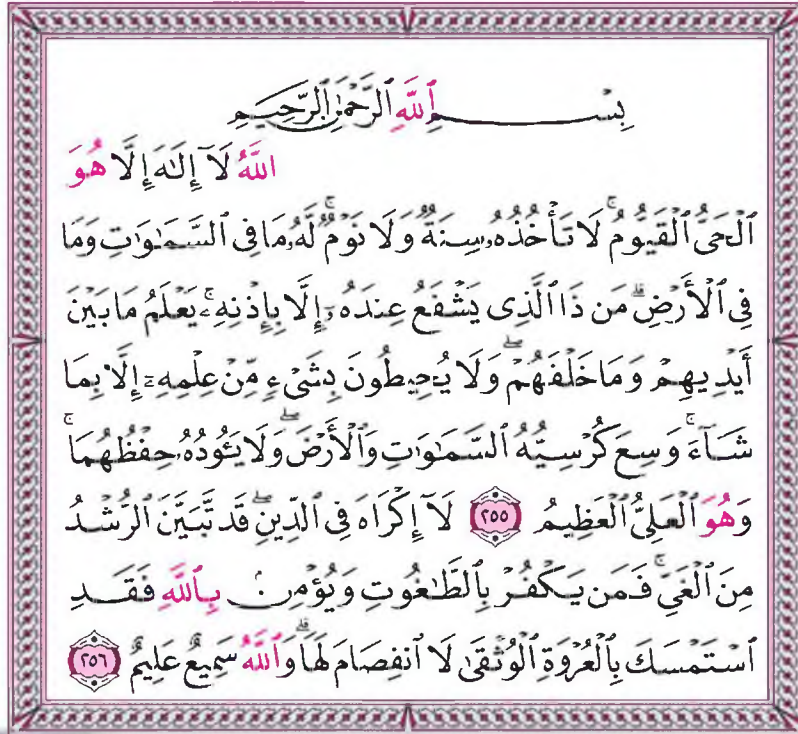 بِسْمِ ٱللَّهِ ٱلرَّحْمَٰنِ ٱلرَّحِيمِ
ٱللَّهُ لَآ إِلَٰهَ إِلَّا هُوَ
ٱلْحَىُّ ٱلْقَيُّومُ ۚ لَا تَأْخُذُهُۥ سِنَةٌ وَلَا نَوْمٌ ۚ لَّهُۥ مَا فِى ٱلسَّمَٰوَٰتِ وَمَا
فِى ٱلْأَرْضِ ۗ مَن ذَا ٱلَّذِى يَشْفَعُ عِندَهُۥٓ إِلَّا بِإِذْنِهِۦ ۚ يَعْلَمُ مَا بَيْنَ
أَيْدِيهِمْ وَمَا خَلْفَهُمْ ۖ وَلَا يُحِيطُونَ بِشَىْءٍ مِّنْ عِلْمِهِۦٓ إِلَّا بِمَا
شَآءَ ۚ وَسِعَ كُرْسِيُّهُ ٱلسَّمَٰوَٰتِ وَٱلْأَرْضَ ۖ وَلَا يَـُٔودُهُۥ حِفْظُهُمَا ۚ
وَهُوَ ٱلْعَلِىُّ ٱلْعَظِيمُ ٢٥٥ لَآ إِكْرَاهَ فِى ٱلدِّينِ ۖ قَد تَّبَيَّنَ ٱلرُّشْدُ
مِنَ ٱلْغَىِّ ۚ فَمَن يَكْفُرْ بِٱلطَّٰغُوتِ وَيُؤْمِنۢ بِٱللَّهِ فَقَدِ
ٱسْتَمْسَكَ بِٱلْعُرْوَةِ ٱلْوُثْقَىٰ لَا ٱنفِصَامَ لَهَا ۗ وَٱللَّهُ سَمِيعٌ عَلِيمٌ ٢٥٦